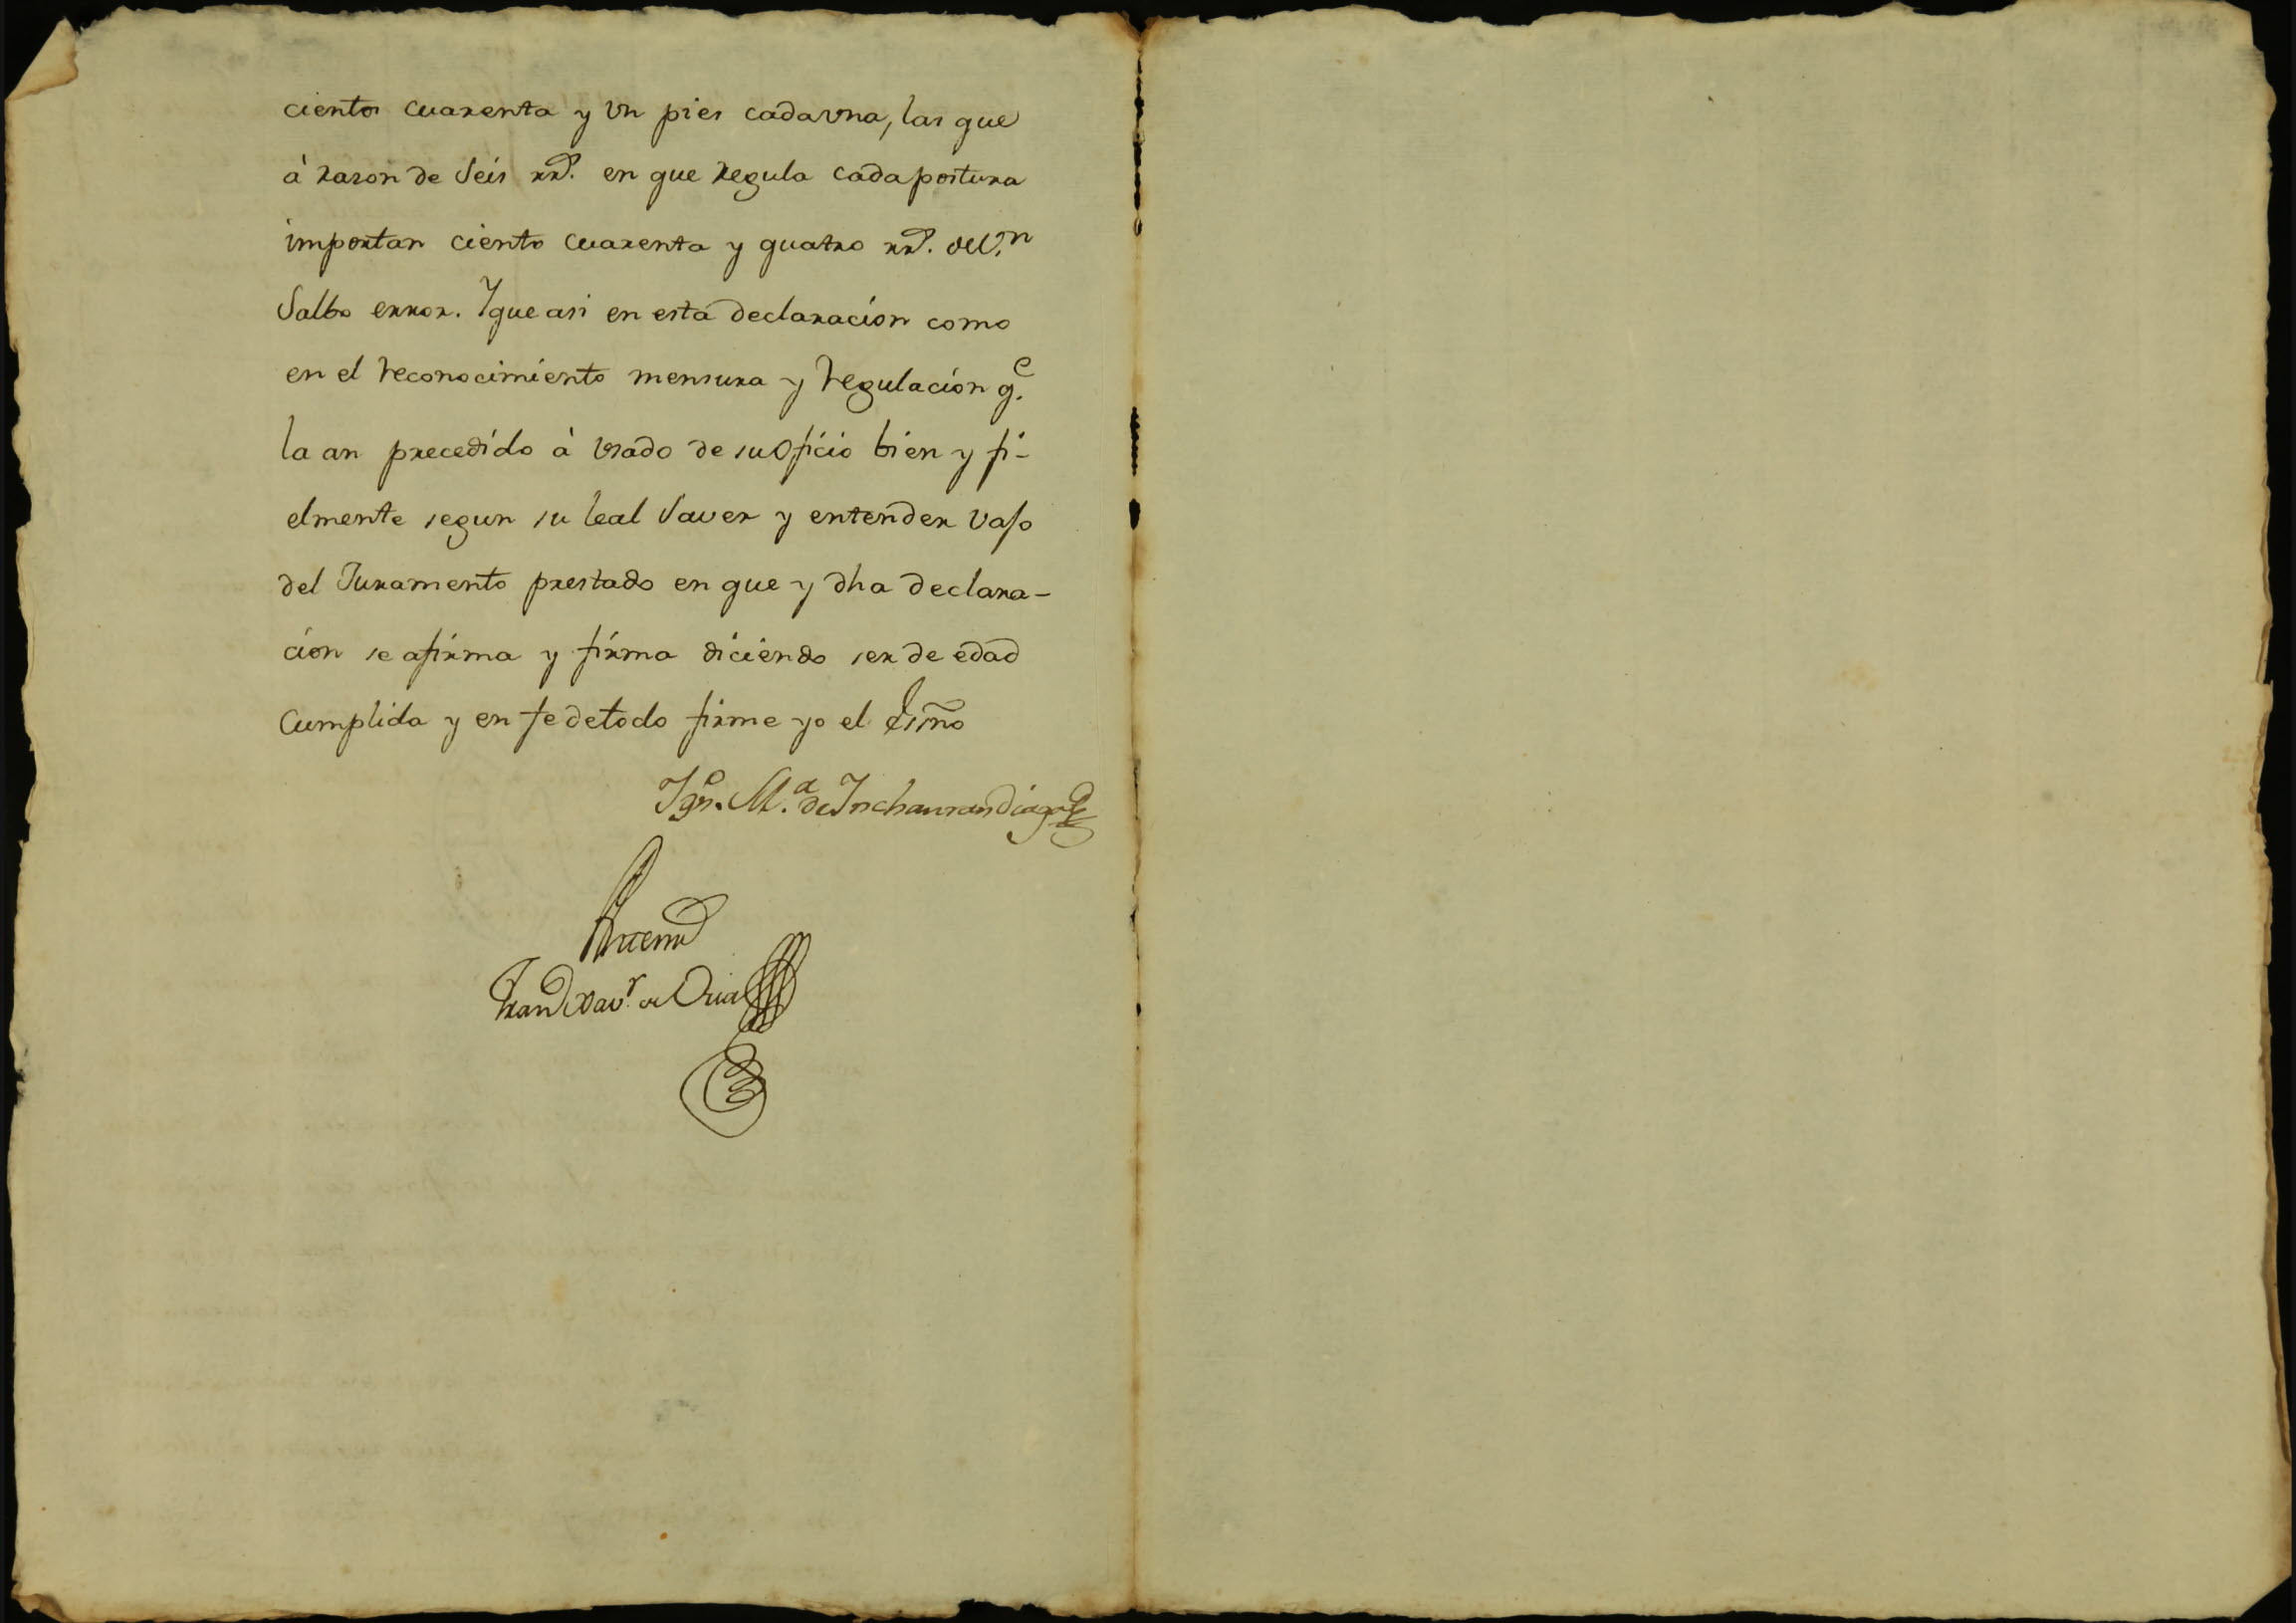 cientos cuarenta y vn pies cadavna, las que
à rason de Seis rr.s en que regula cada postura
importan ciento cuarenta y quatro rr.s de V.n
Salbo error. Yque asi en esta declaracion como
en el reconocimiento mensura y regulacion q.e
la an precedido à vsado de su Oficio bien y fi-
elmente segun su leal Saver y entender vajo
del Juramento prestado en que y dha declara-
cion se afirma y firma diciendo ser de edad
Cumplida y en fe de todo firme yo el Esño
Ign.o M.a de Inchaurandiaga
Antemi
Fran.co Xav.r de Oria